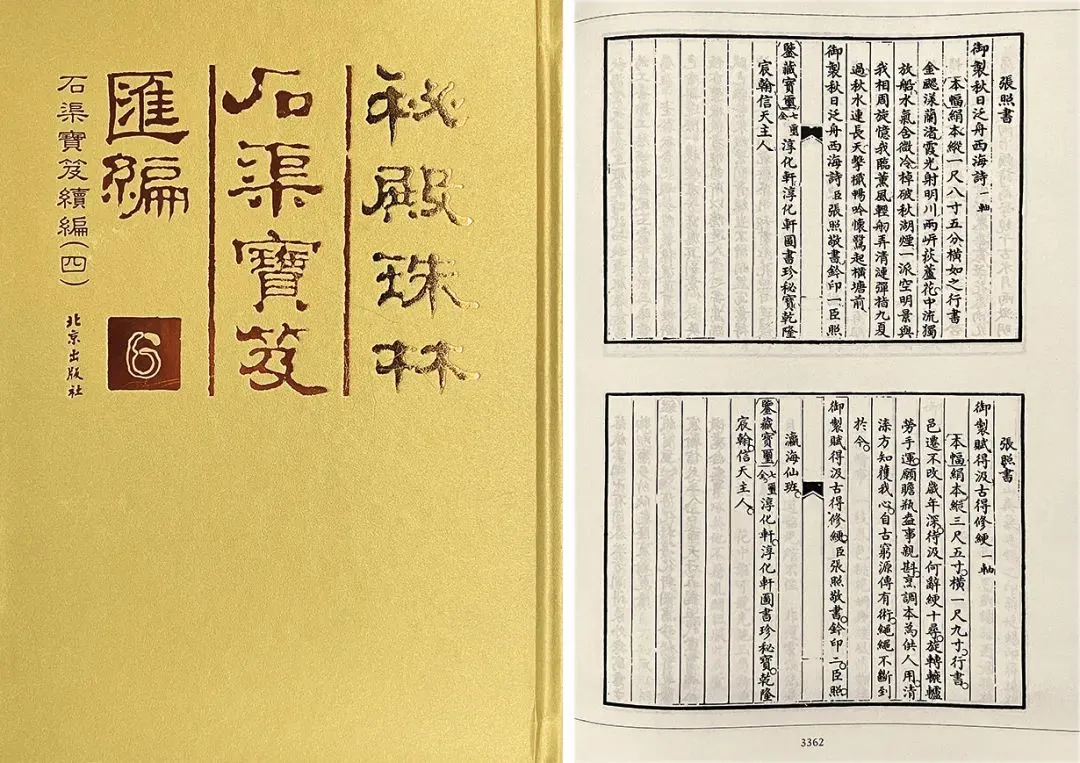 秘殿珠林
石渠寶笈
匯編
石渠寶笈續編(四)
6
北京出版社
張照書
御製秋日泛舟西海詩一軸
本幅絹本縱一尺八寸五分橫如之行書
金飈漾蘭渚霞光射明川兩岍荻蘆花中流獨
放船水氣含微冷棹破秋湖煙一派空明景與
我相周旋憶我臨薰風輕舠弄清漣彈指九夏
過秋水連長天擊檝暢吟懷鷖起橫塘前
御製秋日泛舟西海詩臣張照敬書鈐印一臣照
鑒藏寶璽七璽全淳化軒淳化軒圖書珍秘寶乾隆
宸翰信天主人
張照書
御製賦得汲古得修綆一軸
本幅絹本縱三尺五寸橫一尺九寸行書
邑遷不改歲年深待汲何辭綆十尋旋轉轆轤
勞手運願瞻瓶盎事親斟烹調本為供人用清
涤方知獲我心自古窮源傳有術繩繩不斷到
於今
御製賦得汲古得修綆臣張照敬書鈐印二臣照
瀛海仙班
鑒藏寶璽七璽全淳化軒淳化軒圖書珍秘寶乾隆
宸翰信天主人
3362